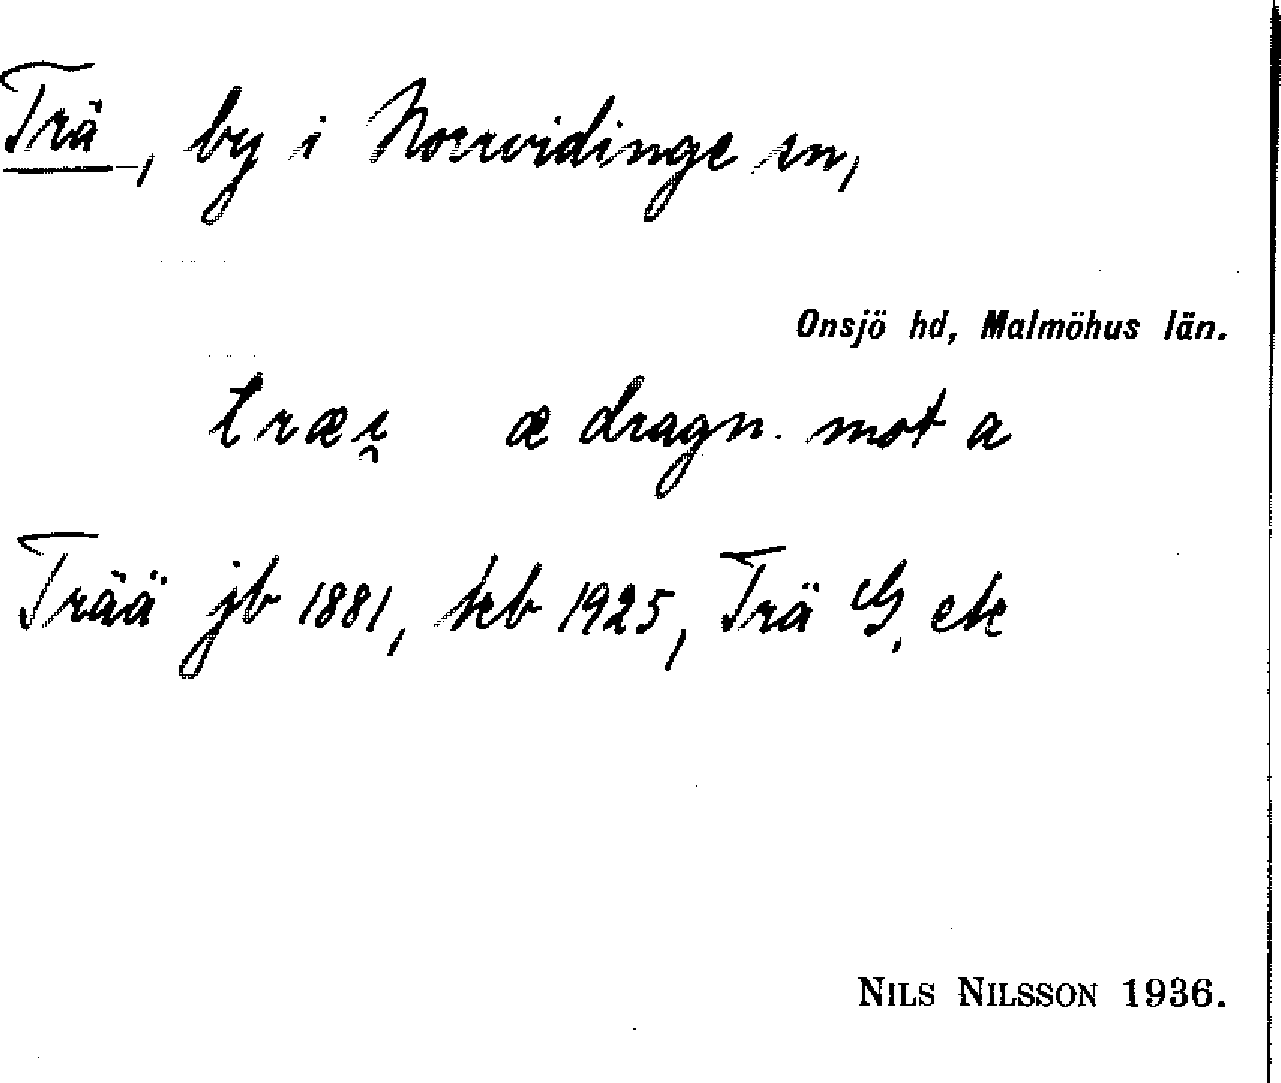 Trä, by i Norrvidinge sn,
Onsjö hd, Malmöhus län.
træi̯ æ dragn. mot a
Trää jb 1881, skb 1925, Trä G, ek
NILS NILSSON 1936.